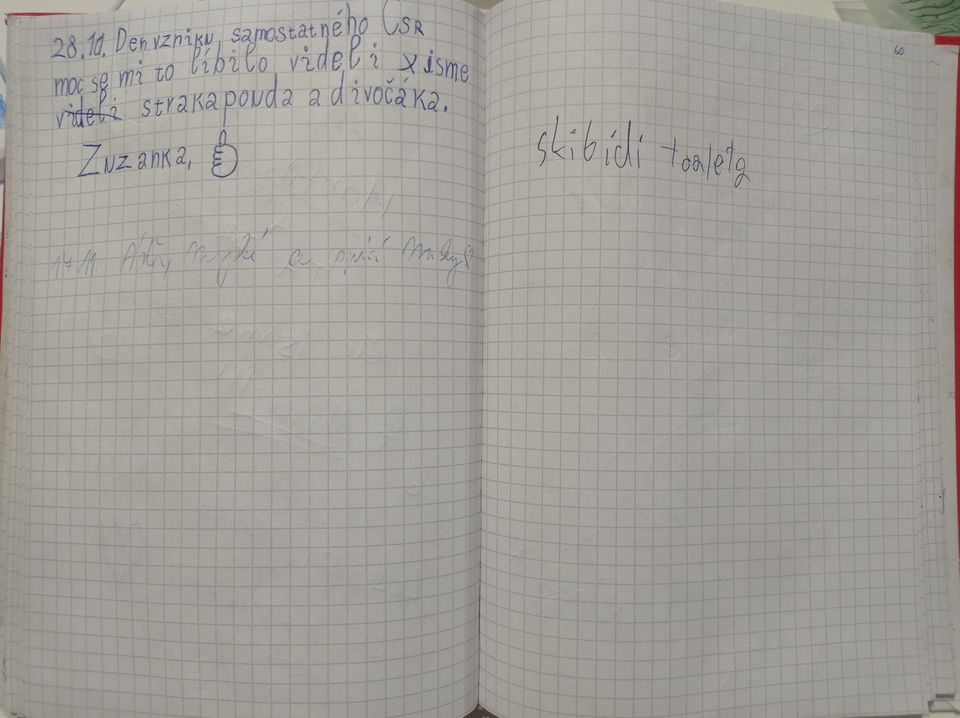 28.10. Den vzniku samostatného ČSR
moc se mi to líbilo viděli x jsme
viděli strakapouda a divočáka.
Zuzanka,
17.11.
60
skibidi toaletg